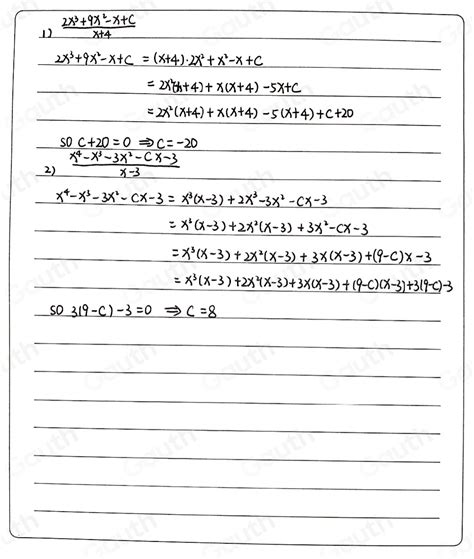 1) (2x³+9x²-x+C)/(x+4)
2x³+9x²-x+C = (x+4)·2x²+x²-x+C
= 2x²(x+4)+x(x+4)-5x+C
= 2x²(x+4)+x(x+4)-5(x+4)+C+20
so C+20=0 ⇒ C=-20
2) (x⁴-x³-3x²-Cx-3)/(x-3)
x⁴-x³-3x²-Cx-3 = x³(x-3)+2x³-3x²-Cx-3
= x³(x-3)+2x²(x-3)+3x²-Cx-3
= x³(x-3)+2x²(x-3)+3x(x-3)+(9-C)x-3
= x³(x-3)+2x²(x-3)+3x(x-3)+(9-C)(x-3)+3(9-C)-3
so 3(9-C)-3=0 ⇒ C=8
Gauth